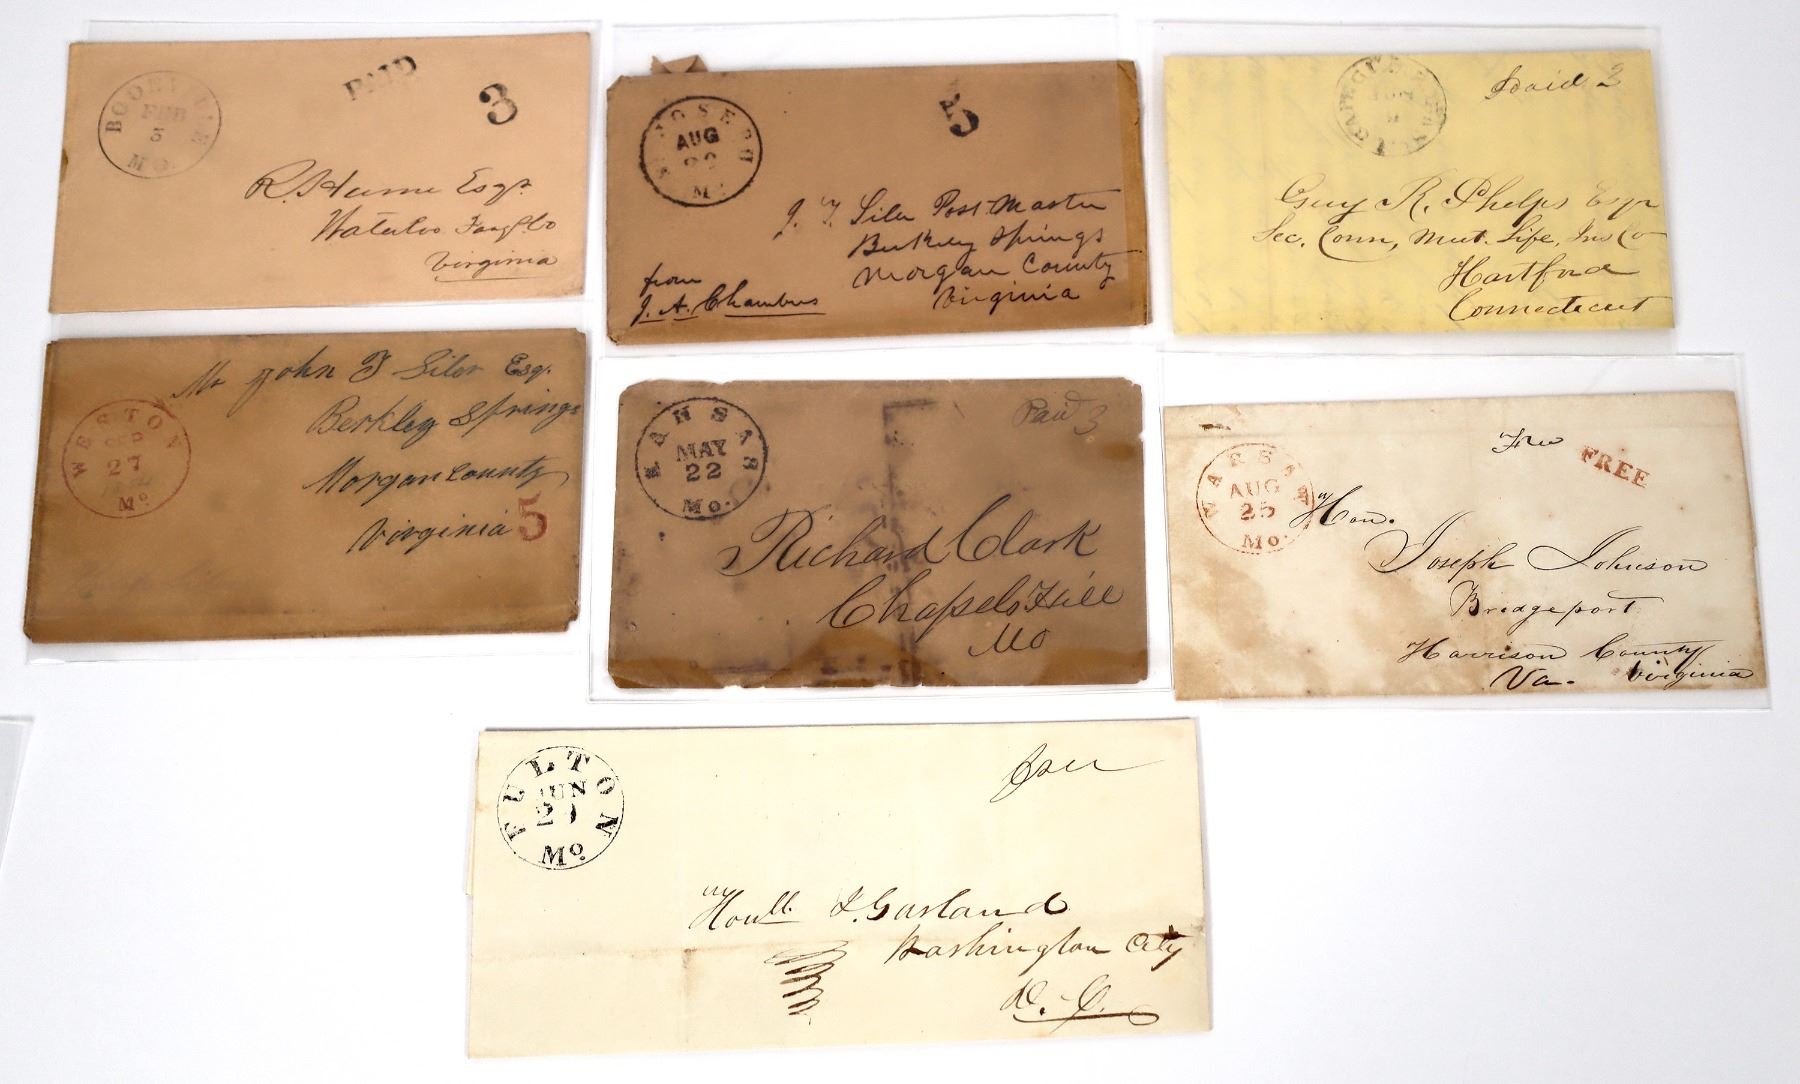 BOONVILLE
FEB
3
MO.
PAID
3
R. Hume Esqr
Waterloo Fauqr Co
Virginia
AUG
MO
5
J. T. Siler Post Master
Berkeley Springs
Morgan County
Virginia
from
J. A. Chambers
CAPE GIRARDEAU
Paid 3
Guy R. Phelps Esqr
Sec. Conn. Mut. Life. Ins Co
Hartford
Connecticut
WESTON
SEP
27
Mo
Mr John T Siler Esq.
Berkley Springs
Morgan County
Virginia
5
MAY
22
Mo.
Paid 3
Richard Clark
Chapel Hill
Mo
WARSAW
AUG
25
Mo.
Free
FREE
Hon.
Joseph Johnson
Bridgeport
Harrison County
Va. Virginia
FULTON
JUN
Mo.
Free
Garland
Washington City
D. C.